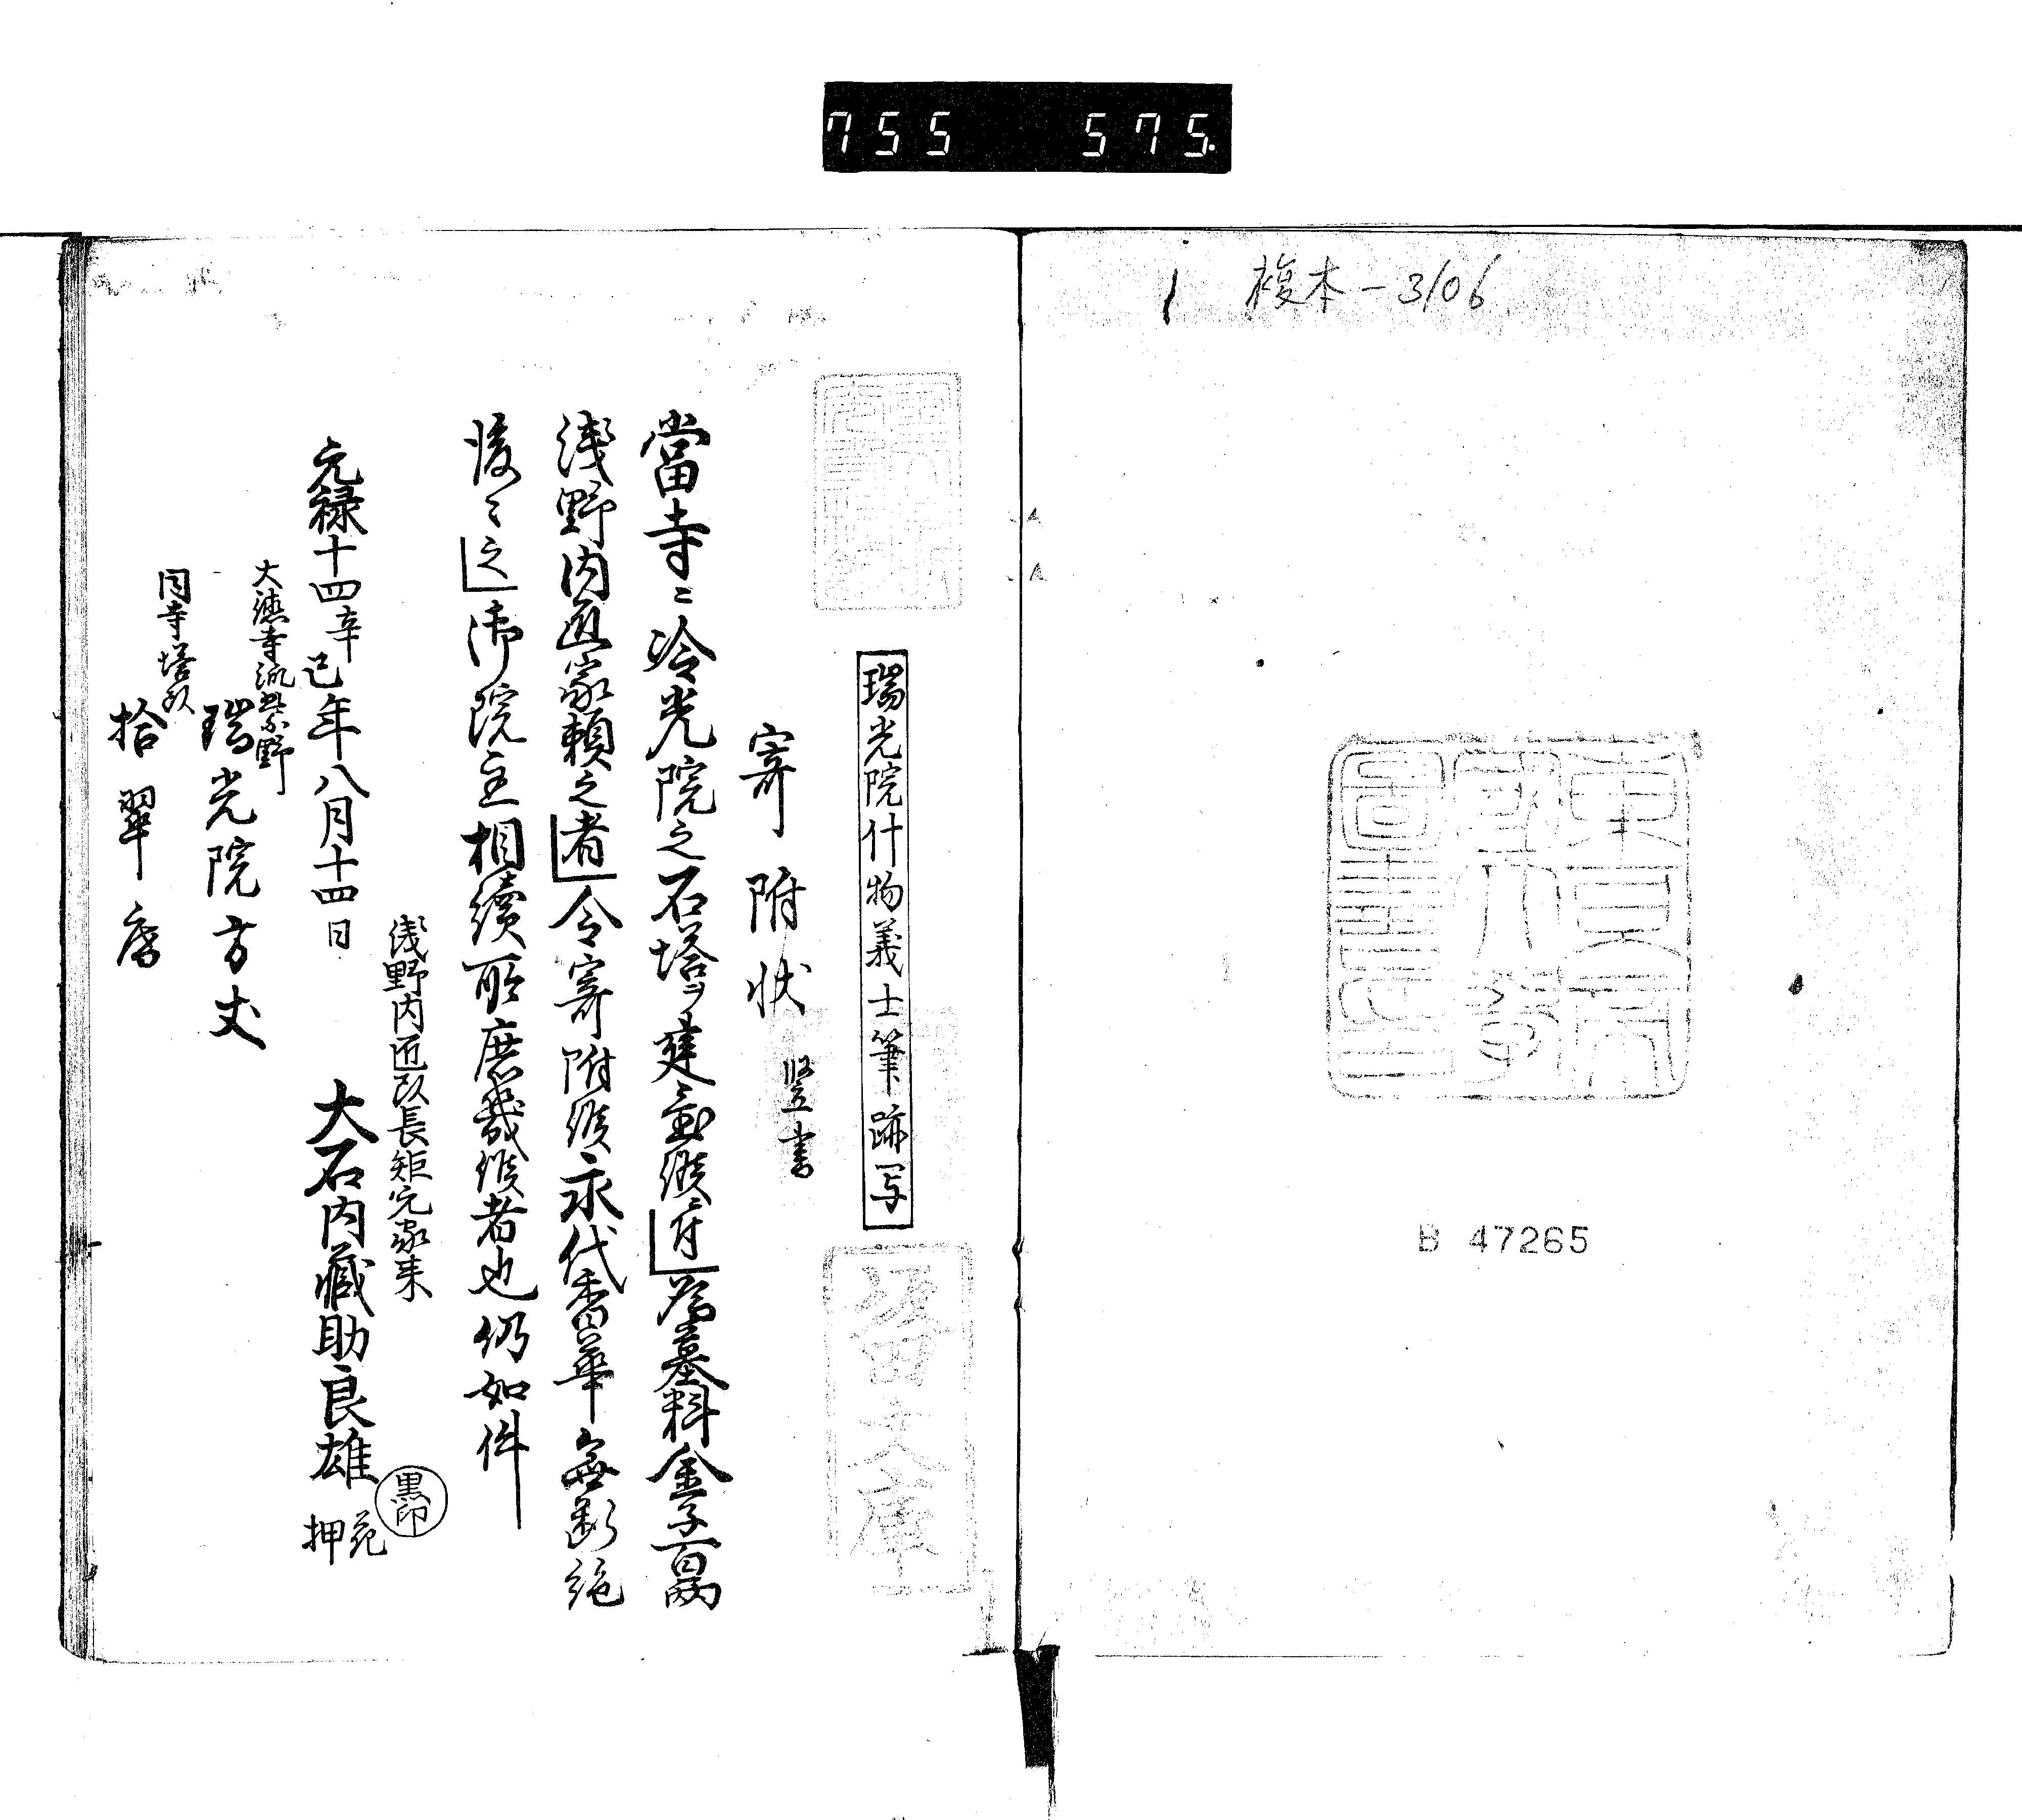 755 575.
1 複本-3106
東京帝國大學圖書印
B 47265
瑞光院什物義士筆跡写
坂田文庫
寄附状 竪書
當寺ニ冷光院之石塔ヲ建金候ニ付為墓料金子百両
浅野内匠家頼之者令寄附候永代香華無断絶
後々之御院主相續所庶幾候者也仍如件
浅野内匠頭長矩元家来
元禄十四辛巳年八月十四日
大石内蔵助良雄
黒印
花押
大徳寺派紫野
瑞光院方丈
同寺塔頭
拾翠庵